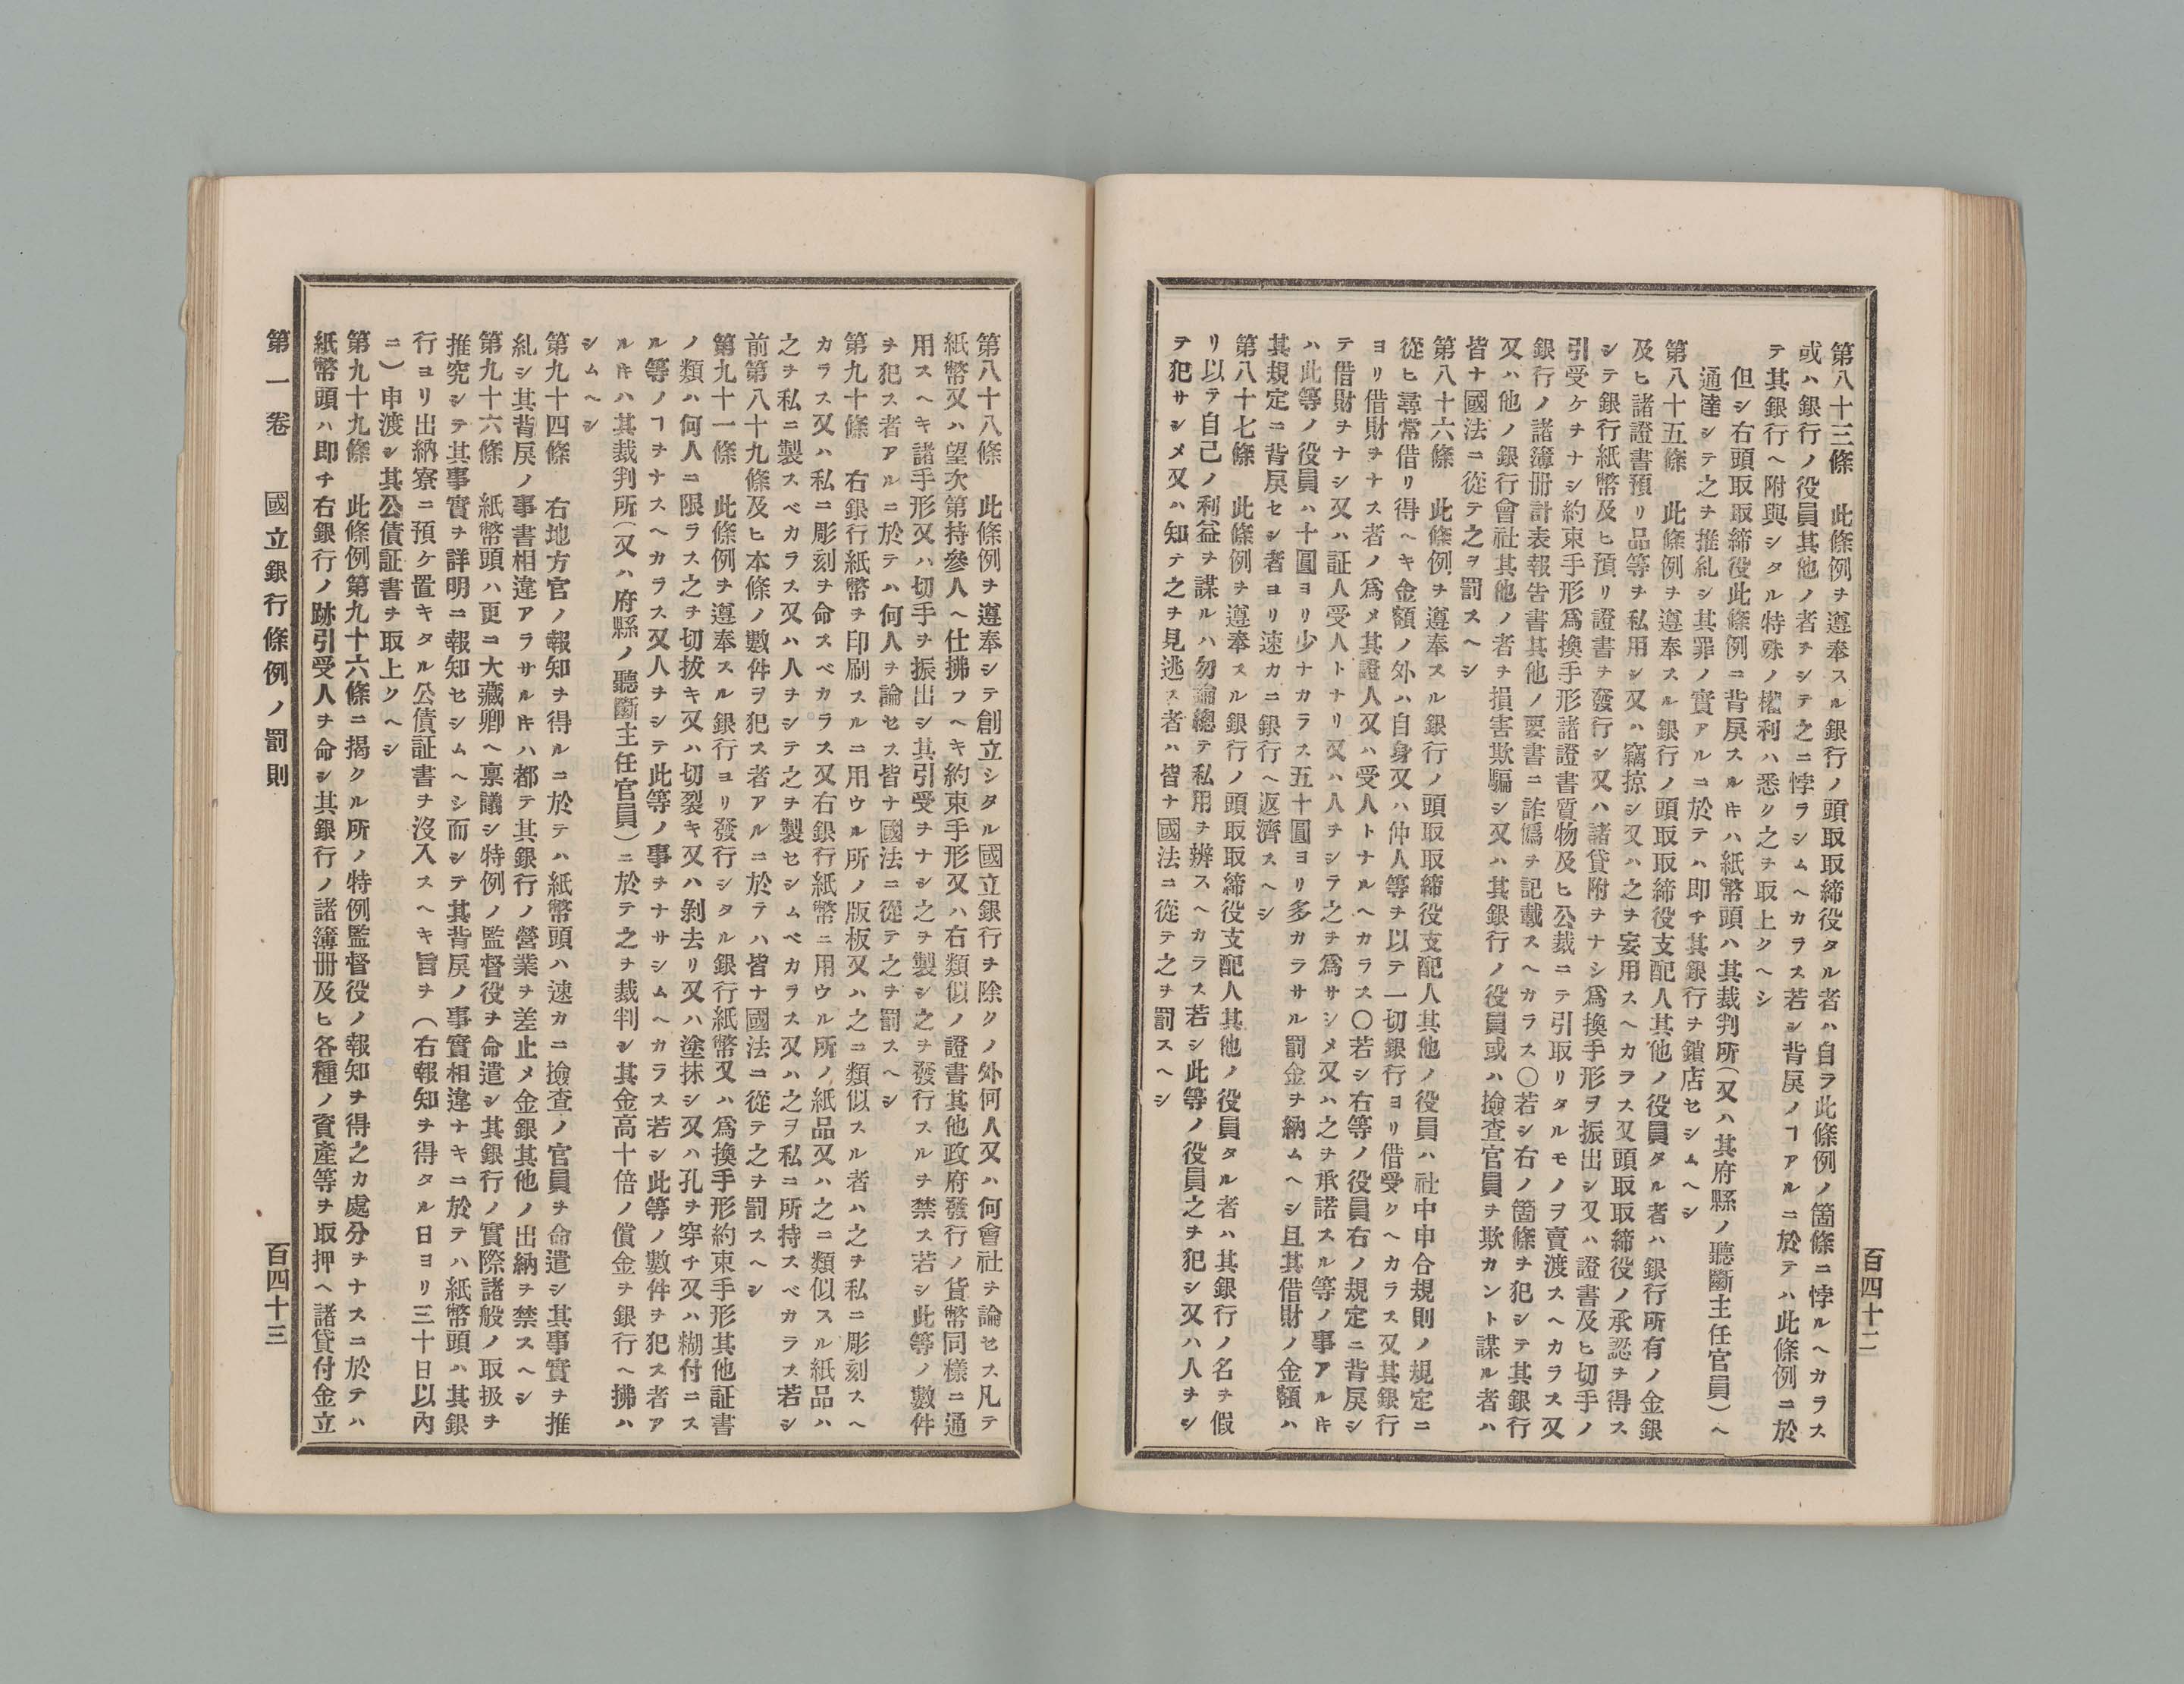 第八十三條　此條例ヲ遵奉スル銀行ノ頭取取締役タル者ハ自ラ此條例ノ箇條ニ悖ルヘカラス
或ハ銀行ノ役員其他ノ者ヲシテ之ニ悖ラシムヘカラス若シ背戻ノヿアルニ於テハ此條例ニ於
テ其銀行ヘ附與シタル特殊ノ權利ハ悉ク之ヲ取上クヘシ
但シ右頭取取締役此條例ニ背戻スルヰハ紙幣頭ハ其裁判所(又ハ其府縣ノ聽斷主任官員)ヘ
通達シテ之ヲ推糺シ其罪ノ實アルニ於テハ即チ其銀行ヲ鎖店セシムヘシ
第八十五條　此條例ヲ遵奉スル銀行ノ頭取取締役支配人其他ノ役員タル者ハ銀行所有ノ金銀
及ヒ諸證書預リ品等ヲ私用シ又ハ竊掠シ又ハ之ヲ妄用スヘカラス又頭取取締役ノ承認ヲ得ス
シテ銀行紙幣及ヒ預リ證書ヲ發行シ又ハ諸貸附ヲナシ爲換手形ヲ振出シ又ハ證書及ヒ切手ノ
引受ケヲナシ約束手形爲換手形諸證書質物及ヒ公裁ニテ引取リタルモノヲ賣渡スヘカラス又
銀行ノ諸簿册計表報告書其他ノ要書ニ詐僞ヲ記載スヘカラス〇若シ右ノ箇條ヲ犯シテ其銀行
又ハ他ノ銀行會社其他ノ者ヲ損害欺騙シ又ハ其銀行ノ役員或ハ撿査官員ヲ欺カント謀ル者ハ
皆ナ國法ニ從テ之ヲ罰スヘシ
第八十六條　此條例ヲ遵奉スル銀行ノ頭取取締役支配人其他ノ役員ハ社中申合規則ノ規定ニ
從ヒ尋常借リ得ヘキ金額ノ外ハ自身又ハ仲人等ヲ以テ一切銀行ヨリ借受クヘカラス又其銀行
ヨリ借財ヲナス者ノ爲メ其證人又ハ受人トナルヘカラス〇若シ右等ノ役員右ノ規定ニ背戻シ
テ借財ヲナシ又ハ証人受人トナリ又ハ人ヲシテ之ヲ爲サシメ又ハ之ヲ承諾スル等ノ事アルヰ
ハ此等ノ役員ハ十圓ヨリ少ナカラス五十圓ヨリ多カラサル罰金ヲ納ムヘシ且其借財ノ金額ハ
其規定ニ背戻セシ者ヨリ速カニ銀行ヘ返濟スヘシ
第八十七條　此條例ヲ遵奉スル銀行ノ頭取取締役支配人其他ノ役員タル者ハ其銀行ノ名ヲ假
リ以テ自己ノ利益ヲ謀ルハ勿論總テ私用ヲ辨スヘカラス若シ此等ノ役員之ヲ犯シ又ハ人ヲシ
テ犯サシメ又ハ知テ之ヲ見逃ス者ハ皆ナ國法ニ從テ之ヲ罰スヘシ
百四十二
第八十八條　此條例ヲ遵奉シテ創立シタル國立銀行ヲ除クノ外何人又ハ何會社ヲ論セス凡テ
紙幣又ハ望次第持參人ヘ仕拂フヘキ約束手形又ハ右類似ノ證書其他政府發行ノ貨幣同樣ニ通
用スヘキ諸手形又ハ切手ヲ振出シ其引受ヲナシ之ヲ製シ之ヲ發行スルヲ禁ス若シ此等ノ數件
ヲ犯ス者アルニ於テハ何人ヲ論セス皆ナ國法ニ從テ之ヲ罰スヘシ
第九十條　右銀行紙幣ヲ印刷スルニ用ウル所ノ版板又ハ之ニ類似スル者ハ之ヲ私ニ彫刻スヘ
カラス又ハ私ニ彫刻ヲ命スベカラス又右銀行紙幣ニ用ウル所ノ紙品又ハ之ニ類似スル紙品ハ
之ヲ私ニ製スベカラス又ハ人ヲシテ之ヲ製セシムベカラス又ハ之ヲ私ニ所持スベカラス若シ
前第八十九條及ヒ本條ノ數件ヲ犯ス者アルニ於テハ皆ナ國法ニ從テ之ヲ罰スヘシ
第九十一條　此條例ヲ遵奉スル銀行ヨリ發行シタル銀行紙幣又ハ爲換手形約束手形其他証書
ノ類ハ何人ニ限ラス之ヲ切拔キ又ハ切裂キ又ハ剝去リ又ハ塗抹シ又ハ孔ヲ穿チ又ハ糊付ニス
ル等ノヿヲナスヘカラス又人ヲシテ此等ノ事ヲナサシムヘカラス若シ此等ノ數件ヲ犯ス者ア
ルヰハ其裁判所(又ハ府縣ノ聽斷主任官員)ニ於テ之ヲ裁判シ其金高十倍ノ償金ヲ銀行ヘ拂ハ
シムヘシ
第九十四條　右地方官ノ報知ヲ得ルニ於テハ紙幣頭ハ速カニ撿査ノ官員ヲ命遣シ其事實ヲ推
糺シ其背戻ノ事書相違アラサルヰハ都テ其銀行ノ營業ヲ差止メ金銀其他ノ出納ヲ禁スヘシ
第九十六條　紙幣頭ハ更ニ大藏卿ヘ稟議シ特例ノ監督役ヲ命遣シ其銀行ノ實際諸般ノ取扱ヲ
推究シテ其事實ヲ詳明ニ報知セシムヘシ而シテ其背戻ノ事實相違ナキニ於テハ紙幣頭ハ其銀
行ヨリ出納寮ニ預ケ置キタル公債証書ヲ沒入スヘキ旨ヲ(右報知ヲ得タル日ヨリ三十日以內
ニ)申渡シ其公債証書ヲ取上クヘシ
第九十九條　此條例第九十六條ニ揭クル所ノ特例監督役ノ報知ヲ得之カ處分ヲナスニ於テハ
紙幣頭ハ即チ右銀行ノ跡引受人ヲ命シ其銀行ノ諸簿册及ヒ各種ノ資產等ヲ取押ヘ諸貸付金立
第一卷　國立銀行條例ノ罰則　百四十三